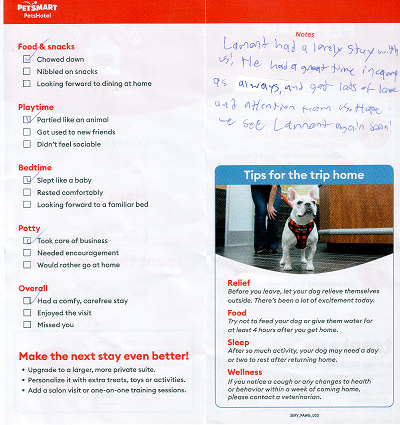 PETSMART
PetsHotel
Food & snacks
Chowed down
Nibbled on snacks
Looking forward to dining at home
Playtime
Partied like an animal
Got used to new friends
Didn't feel sociable
Bedtime
Slept like a baby
Rested comfortably
Looking forward to a familiar bed
Potty
Took care of business
Needed encouragement
Would rather go at home
Overall
Had a comfy, carefree stay
Enjoyed the visit
Missed you
Make the next stay even better!
• Upgrade to a larger, more private suite.
• Personalize it with extra treats, toys or activities.
• Add a salon visit or one-on-one training sessions.
Notes
Lamont had a lovely stay with
us! He had a great time in camp
as always, and got lots of love
and attention from us. Hope
we see Lamont again soon!
Tips for the trip home
Relief
Before you leave, let your dog relieve themselves
outside. There's been a lot of excitement today.
Food
Try not to feed your dog or give them water for
at least 4 hours after you get home.
Sleep
After so much activity, your dog may need a day
or two to rest after returning home.
Wellness
If you notice a cough or any changes to health
or behavior within a week of coming home,
please contact a veterinarian.